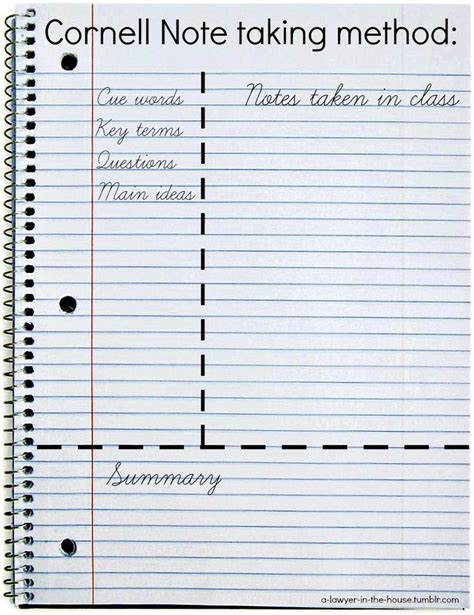 Cornell Note taking method:
Cue words
Key terms
Questions
Main ideas
Notes taken in class
Summary
a-lawyer-in-the-house.tumblr.com